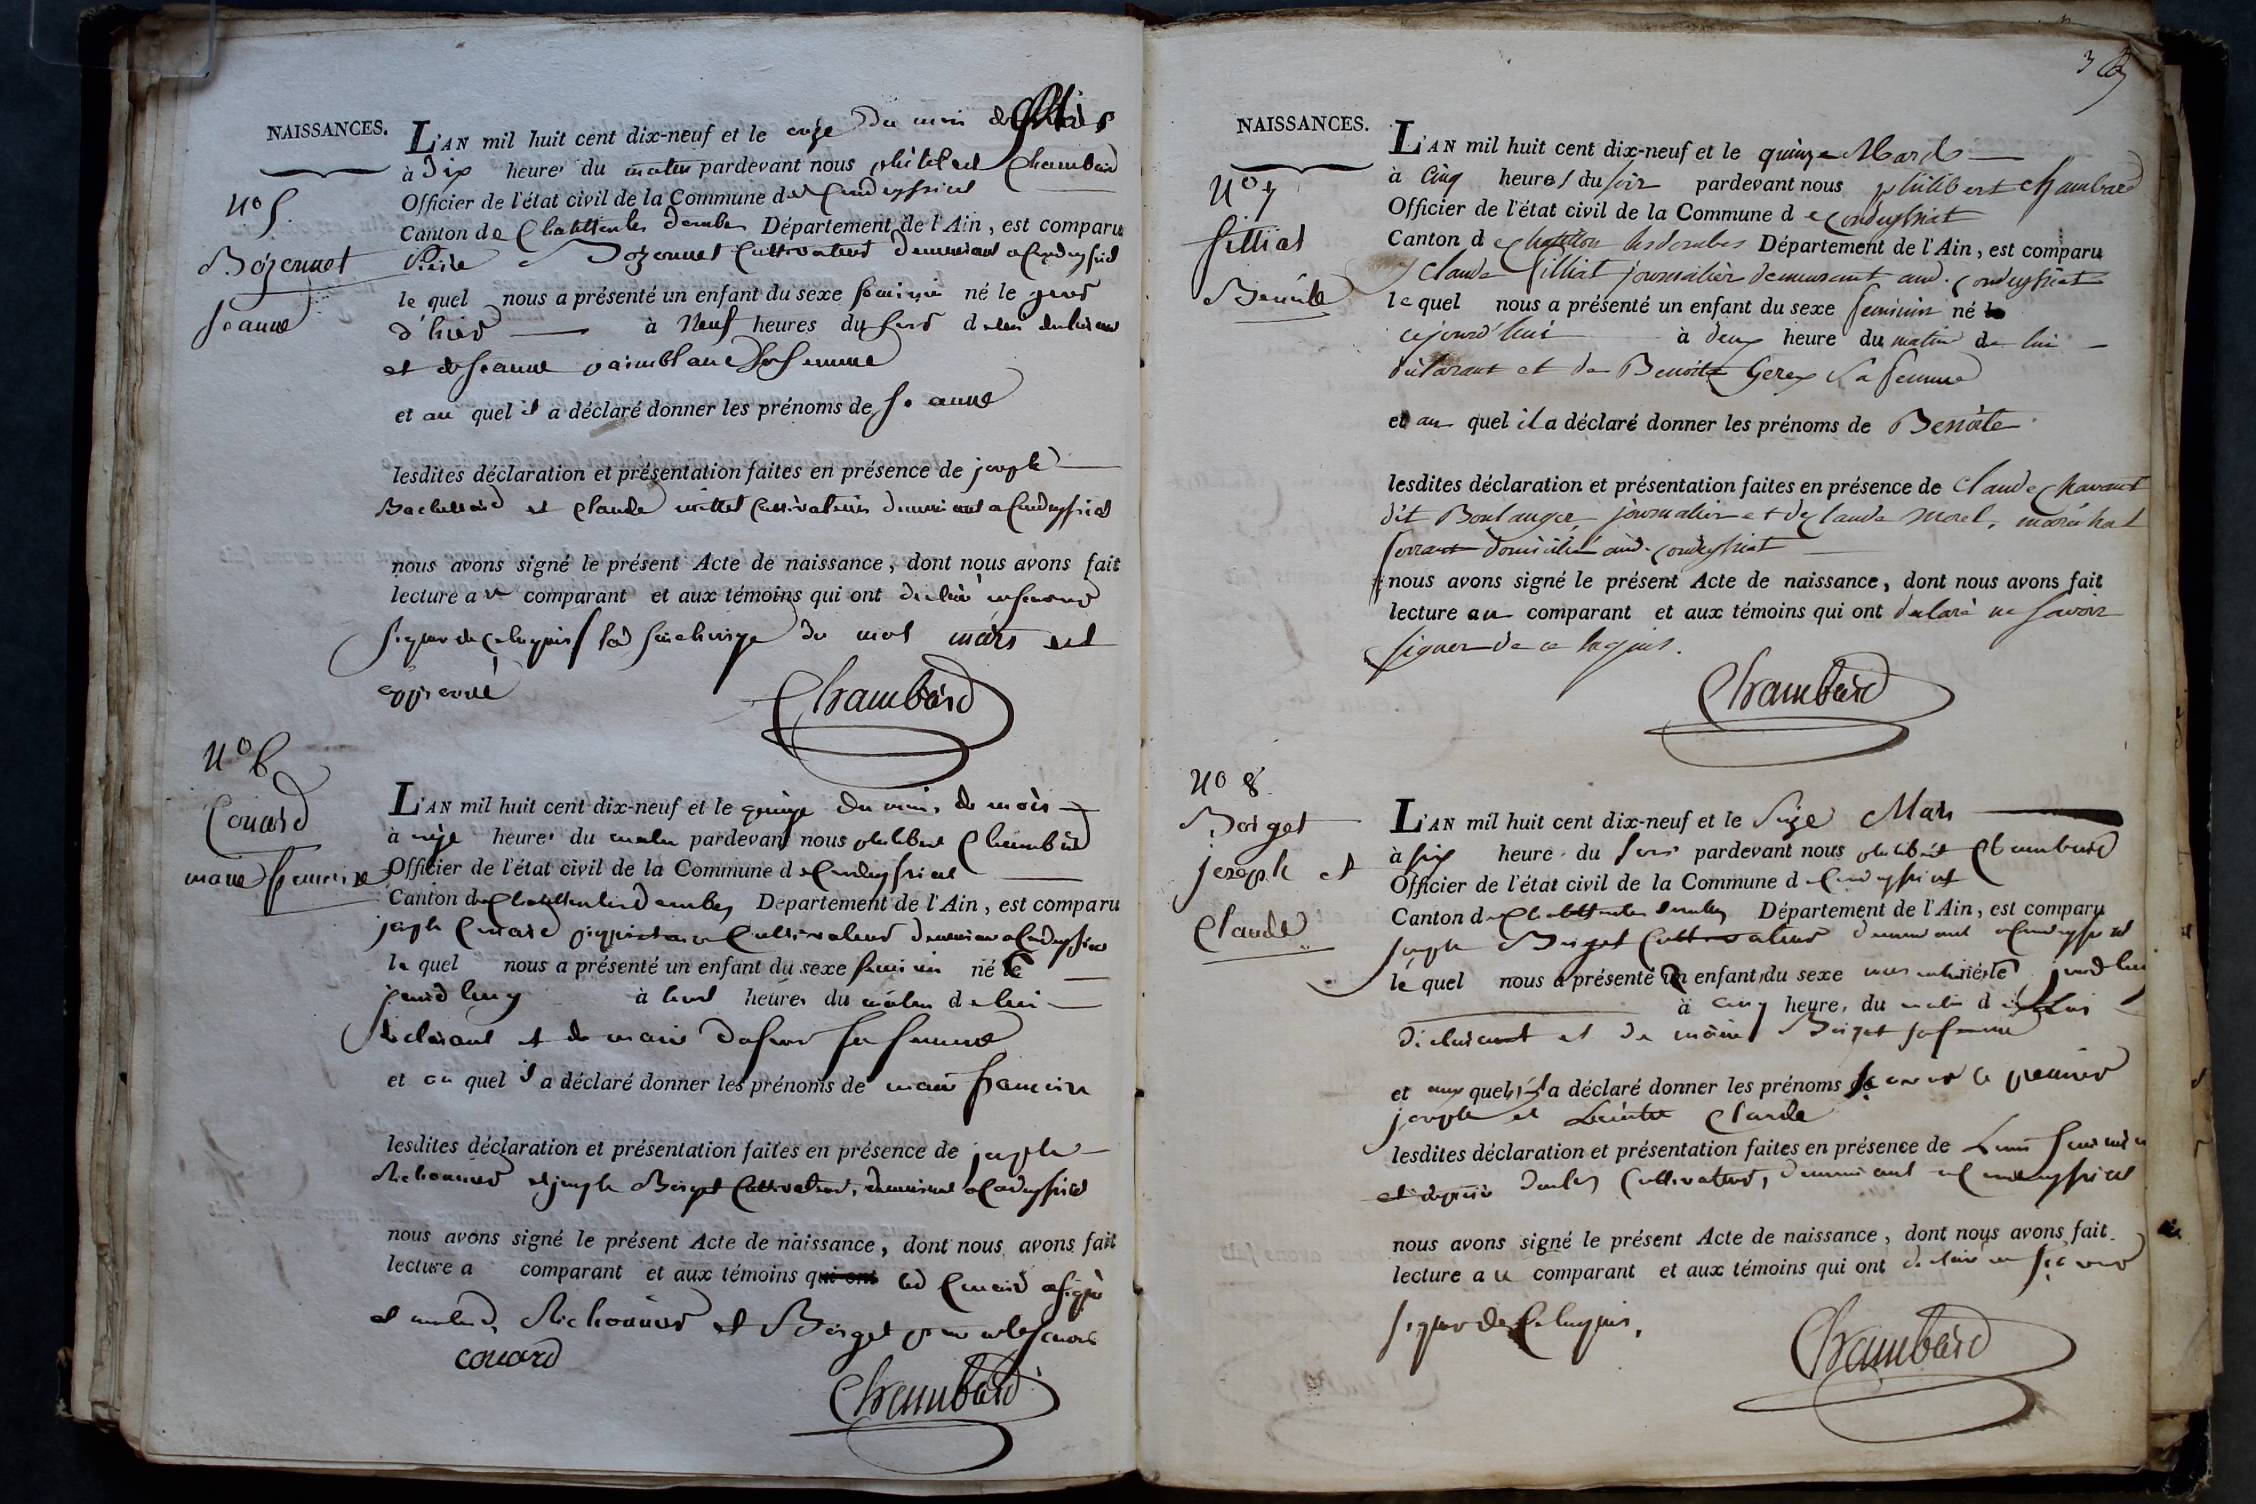 NAISSANCES.
N° 5.
Bozonnet
jeanne
L'AN mil huit cent dix-neuf et le onze du mois de
à dix heures du matin pardevant nous philibert Chambard
Officier de l'état civil de la Commune de Condeyssiat
Canton de Chatillon les dombes Département de l'Ain, est comparu
Pierre Bozonnet Cultivateur demeurant a Condeyssiat
le quel nous a présenté un enfant du sexe feminin né le jour
d'hier à Neuf heures du soir de lui declarant
et de jeanne sa femme
et au quel il a déclaré donner les prénoms de jeanne
lesdites déclaration et présentation faites en présence de joseph
et Claude Cultivateurs demeurant a Condeyssiat
nous avons signé le présent Acte de naissance, dont nous avons fait
lecture au comparant et aux témoins qui ont déclaré ne savoir
signer de ce enquis la surcharge du mot mars est
approuvé
Chambard
N° 6
Couard
marie francoise
L'AN mil huit cent dix-neuf et le quinze du mois de mars
à onze heures du matin pardevant nous philibert Chambard
Officier de l'état civil de la Commune de Condeyssiat
Canton de Chatillon les Dombes Département de l'Ain, est comparu
joseph Couard propriétaire Cultivateur demeurant a Condeyssiat
le quel nous a présenté un enfant du sexe feminin né le
jourd'huy à heures du matin de lui
déclarant et de marie sa femme
et au quel il a déclaré donner les prénoms de marie francoise
lesdites déclaration et présentation faites en présence de joseph
et joseph Boiget Cultivateurs, demeurant a Condeyssiat
nous avons signé le présent Acte de naissance, dont nous avons fait
lecture a comparant et aux témoins qui ont led Couard a signé
et et Boiget pour ne le savoir
couard
Chambard
3
NAISSANCES.
N° 7
filliat
Benoite
L'AN mil huit cent dix-neuf et le quinze Mars
à Cinq heures du soir pardevant nous philibert chambard
Officier de l'état civil de la Commune de Condeyssiat
Canton de chatillon lesdombes Département de l'Ain, est comparu
Claude filliat journalier demeurant aud. Condeyssiat
le quel nous a présenté un enfant du sexe feminin né le
cejourd'hui à deux heure du matin de lui
déclarant et de Benoite Gerex sa femme
et au quel il a déclaré donner les prénoms de Benoite
lesdites déclaration et présentation faites en présence de Claude Chavant
dit Boulanger, journalier et de Claude morel, maréchal
ferrant domicilié aud. Condeyssiat
nous avons signé le présent Acte de naissance, dont nous avons fait
lecture au comparant et aux témoins qui ont declaré ne savoir
signer de ce enquis.
Chambard
N° 8.
Boiget
joseph et
Claude
L'AN mil huit cent dix-neuf et le Seize Mars
à six heure du soir pardevant nous philibert Chambard
Officier de l'état civil de la Commune de Condeyssiat
Canton de Chatillon les dombes Département de l'Ain, est comparu
joseph Boiget Cultivateur demeurant a Condeyssiat
le quel nous a présenté un enfant du sexe masculin né le jourd'hui
à cinq heure, du matin de lui
déclarant et de marie Boiget sa femme
et aux quels il a déclaré donner les prénoms de savoir le premier
joseph et Claude
lesdites déclaration et présentation faites en présence de
Cultivateurs, demeurant a Condeyssiat
nous avons signé le présent Acte de naissance, dont nous avons fait
lecture au comparant et aux témoins qui ont déclaré ne savoir
signer de ce enquis.
Chambard